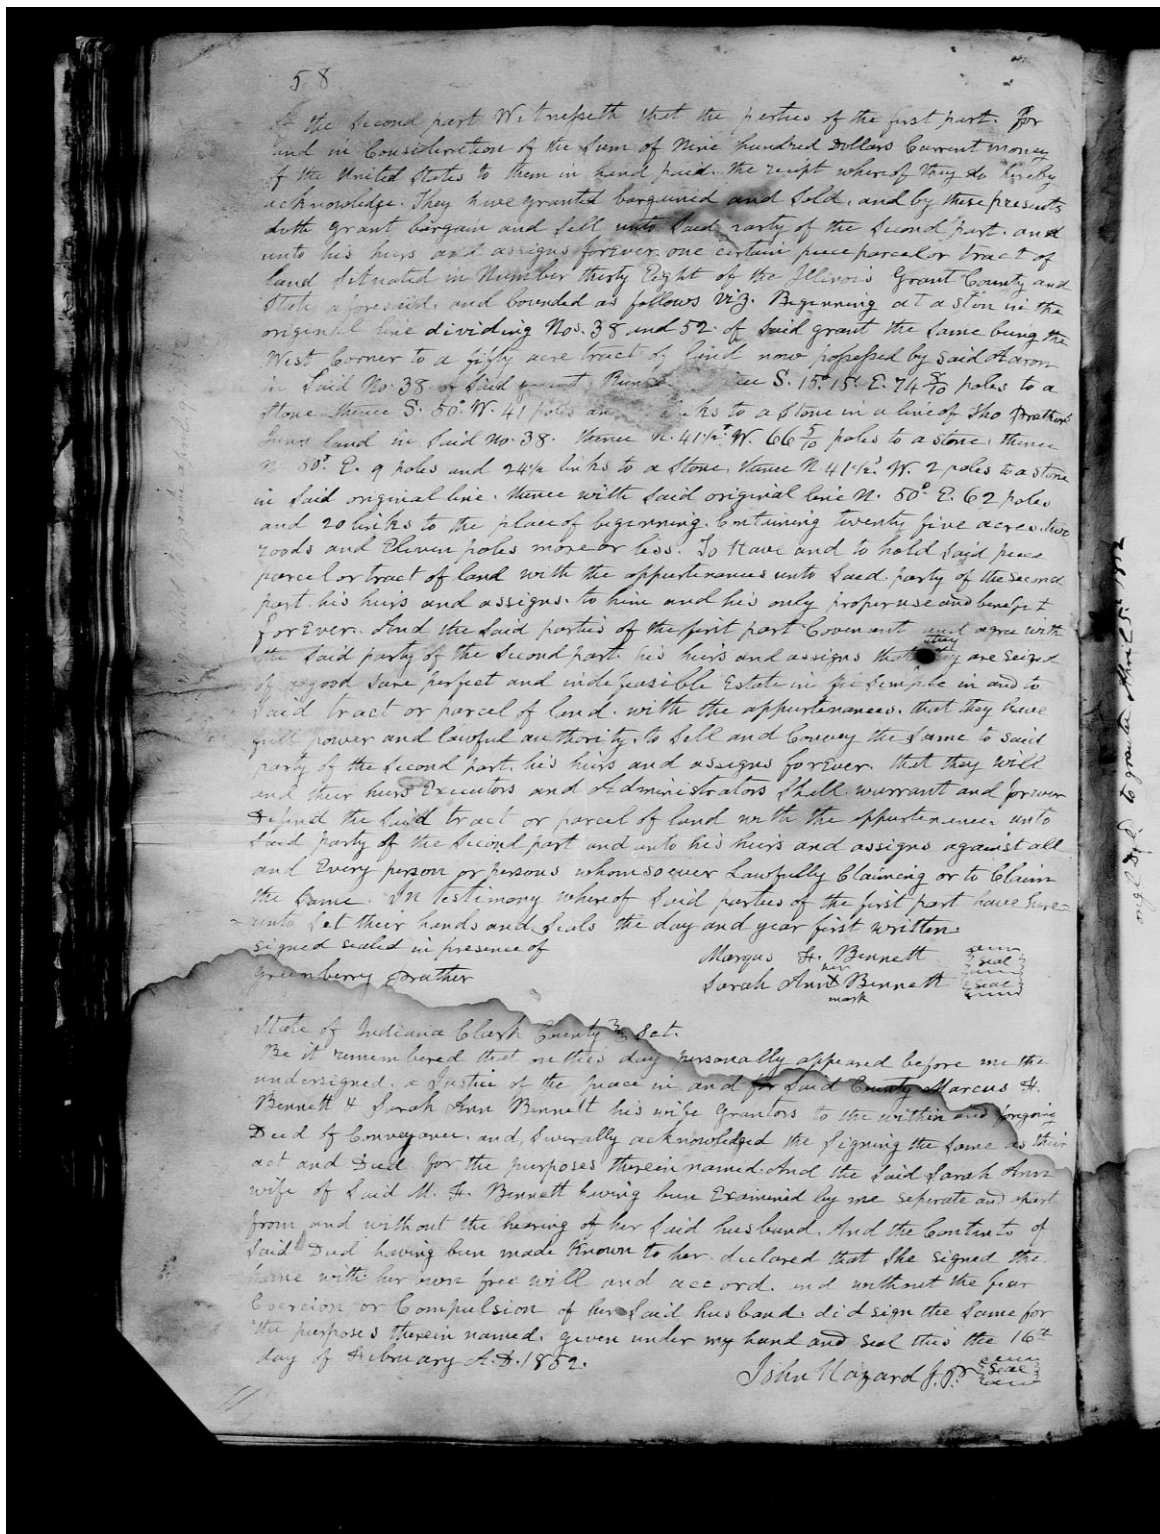 58
of the Second part Witnesseth that the parties of the first part. For
and in Consideration of the Sum of Nine hundred Dollars Current money
of the United States to them in hand paid. the reciept whereof they do hereby
acknowledge. They have granted bargained and Sold, and by these presents
doth grant bargain and Sell unto Said party of the Second part. and
unto his heirs and assigns forever. one certain piece parcel or tract of
land Situated in Number thirty Eight of the Illinois Grant County and
State aforesaid. and bounded as follows viz. Beginning at a ston in the
original line dividing Nos. 38 and 52. of Said grant the Same being the
West Corner to a fifty acre tract of land now possessed by Said Aaron
in Said No. 38 of Said grant. S. 15° 15' E. 74 8/10 poles to a
Stone thence S. 50° W. 41 poles and links to a Stone in a line of Tho Prathers
land in Said No. 38. thence N. 41 1/2° W. 66 5/10 poles to a stone. thence
N 50° E. 9 poles and 24 1/2 links to a Stone, thence N 41 1/2° W. 2 poles to a stone
in Said original line. thence with Said original line N. 50° E. 62 poles
and 20 links to the place of beginning. Containing twenty five acres. two
roods and Eleven poles more or less. To Have and to hold Said piece
parcel or tract of land with the appurtenances unto Said party of the second
part. his heirs and assigns. to him and his only proper use and benefit
forEver. And the Said parties of the first part Covenant and agree with
the Said party of the Second part. his heirs and assigns that they are seized
of a good Sure perfect and indefeasible Estate in fee Simple in and to
Said tract or parcel of land. with the appurtenances. that they have
full power and lawful authority. to Sell and Convey the Same to said
party of the Second part. his heirs and assigns forEver. that they will
and their heirs Executors and Administrators Shall warrant and forever
Defend the Said tract or parcel of land with the appurtenances unto
Said party of the Second part and unto his heirs and assigns against all
and Every person or persons whomsoever Lawfully Claiming or to Claim
the Same. In testimony whereof Said parties of the first part have here-
unto Set their hands and Seals the day and year first written.
Signed sealed in presence of
Greenberry Prather
Marqus H. Bennett seal
Sarah Ann her X mark Bennett seal
State of Indiana Clark County Sct.
Be it remembered that on this day personally appeared before me the
undersigned. a Justice of the peace in and for Said County Marcus H.
Bennett & Sarah Ann Bennett his wife Grantors to the within and forgoing
Deed of Conveyance. and, Severally acknowledged the Signing the Same as their
act and Deed for the purposes therein named. And the Said Sarah Ann
wife of Said M. H. Bennett having been Examined by me Seperate and apart
from and without the hearing of her Said husband. And the Contents of
Said Deed having been made Known to her. declared that She signed the
Same with her own free will and accord. and without the fear
Coercion or Compulsion of her Said husband. did sign the Same for
the purposes therein named. given under my hand and seal this the 16th
day of February A.D. 1852.
John Hazard J.P. seal
to grantee 25th 1852